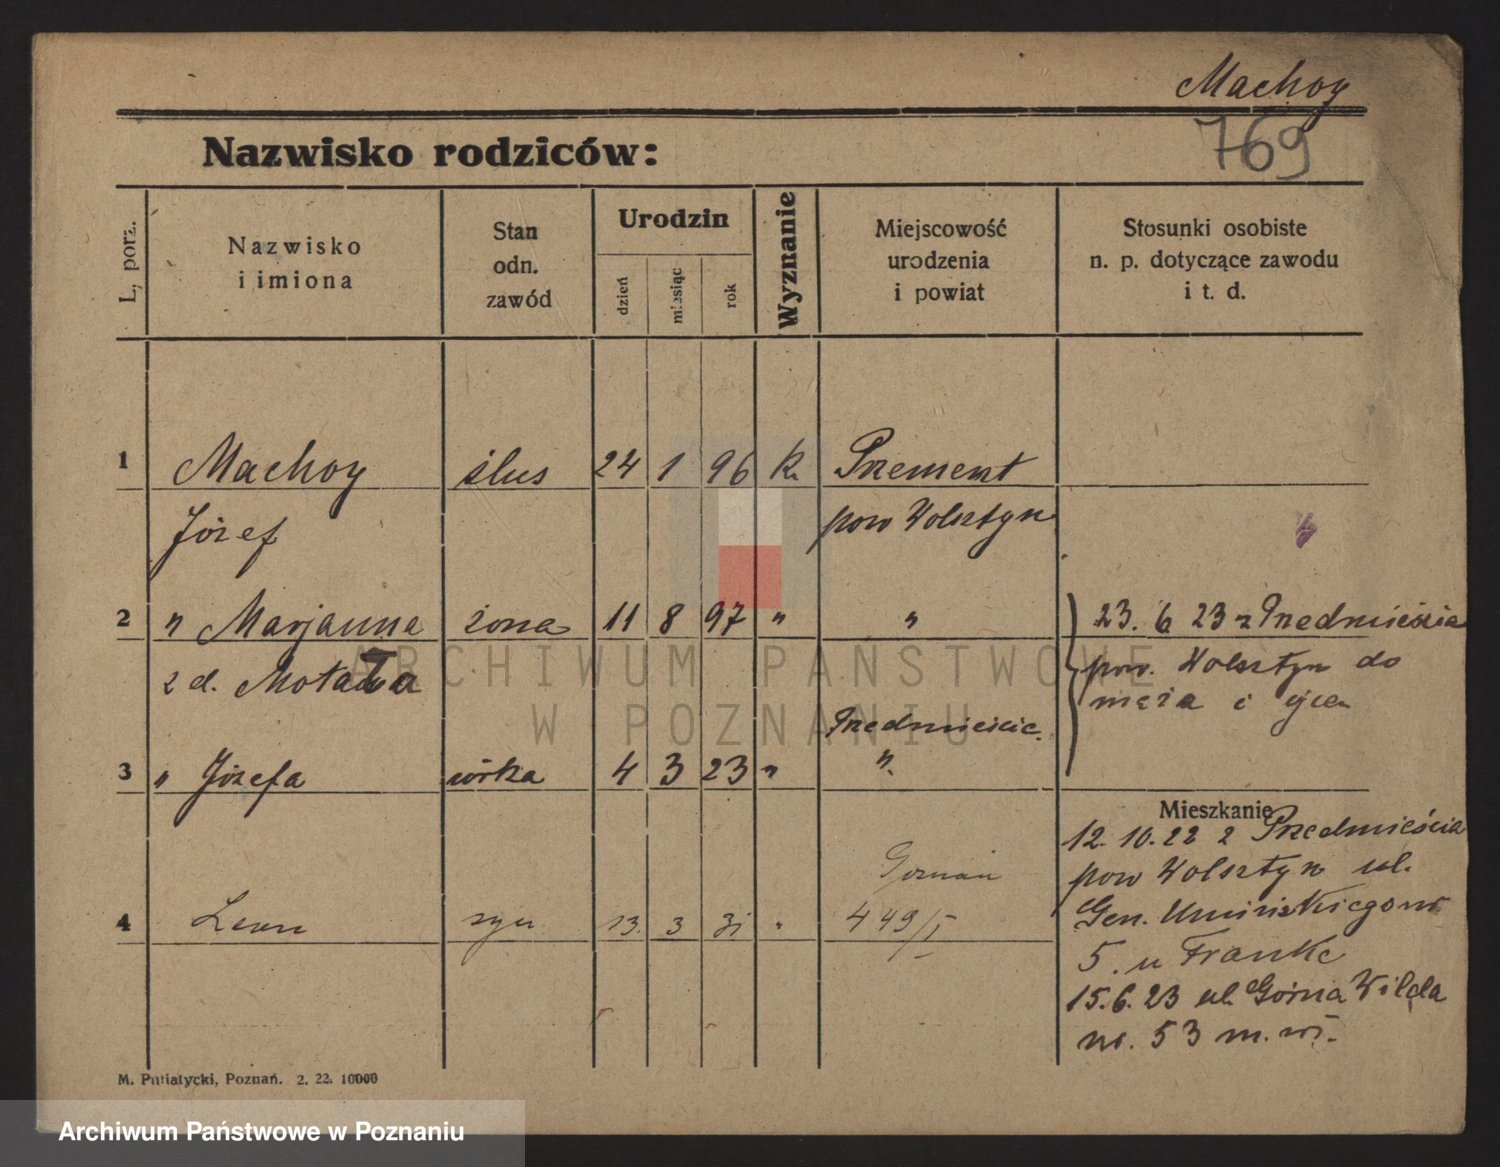 Machoy
769
Nazwisko rodziców:
L, porz.
Nazwisko
i imiona
Stan
odn.
zawód
Urodzin
dzień
miesiąc
rok
Wyznanie
Miejscowość
urodzenia
i powiat
Stosunki osobiste
n. p. dotyczące zawodu
i t. d.
1 Machoy ślus 24 1 96 k Przement
Józef pow Wolsztyn
2 " Marjanna żona 11 8 97 " " 23. 6 23 z Przedmieścia
z d. Motała pow. Wolsztyn do
męża i ojca
Przedmieście
3 " Józefa córka 4 3 23 " "
Mieszkanie
12. 10. 22 z Przedmieścia
pow Wolsztyn ul.
Poznań
4 Leon syn 13. 3 31 " 449/I
Gen. Umińskiego nr
5. u Franke
15. 6. 23 ul. Górna Wilda
nr. 53 m.
M. Putiatycki, Poznań. 2. 22. 10000
ARCHIWUM PAŃSTWOWE
W POZNANIU
Archiwum Państwowe w Poznaniu